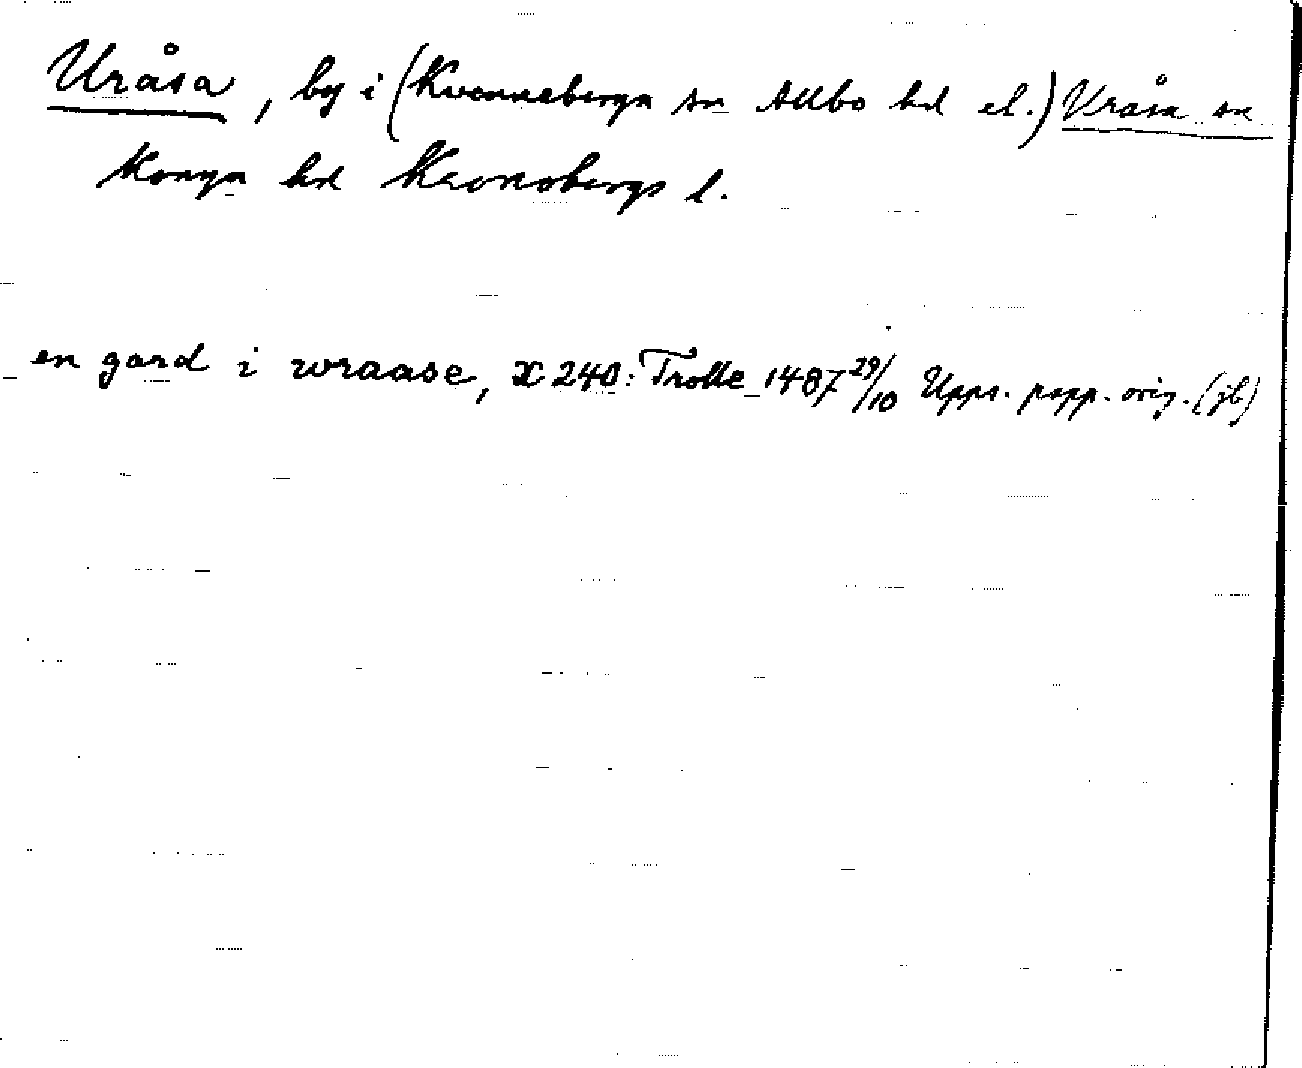 Uråsa, by i (Kvenneberga sn Allbo hd el.) Uråsa sn
Konga hd Kronobergs l.
en gard i wraase, X 240: Trolle 1487 29/10 Upps. papp. orig. (jb)